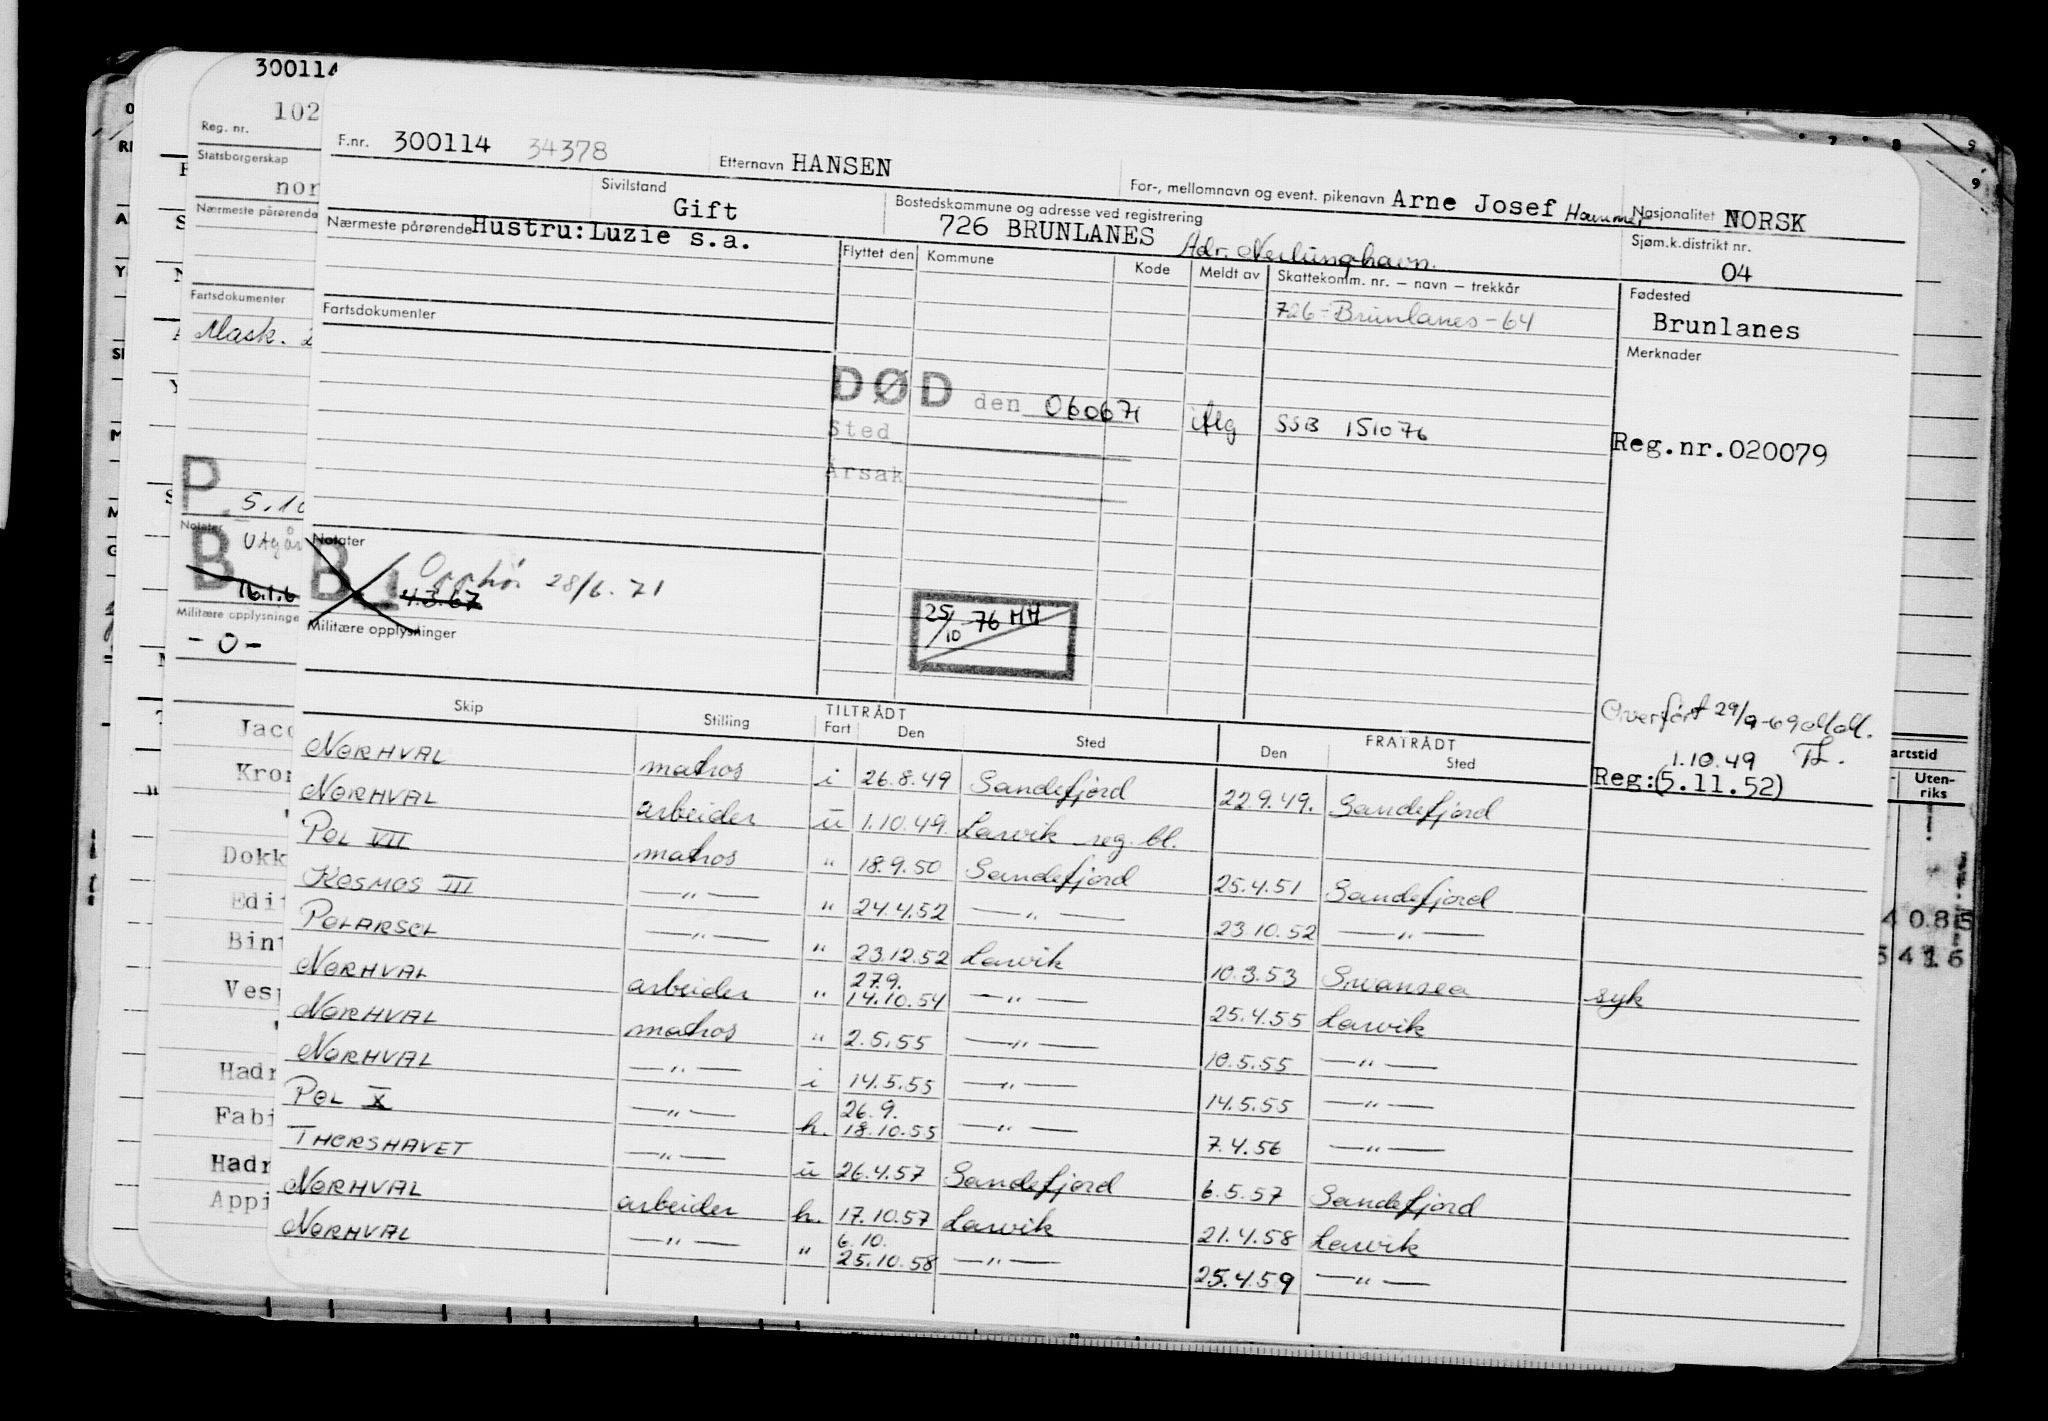 300114
102
Reg. nr.
Statsborgerskap
nor
Nærmeste pårørende
Fartsdokumenter
Mask.
P 5.10
Notater
B Utgår
16.1.6
Militære opplysninge
-0-
F.nr. 300114 34378 Etternavn HANSEN For-, mellomnavn og event. pikenavn Arne Josef Nasjonalitet NORSK
Sivilstand Gift
Bostedskommune og adresse ved registrering
726 BRUNLANES Adr. Nevlunghavn.
Sjøm.k.distrikt nr.
04
Nærmeste pårørende Hustru:Luzie s.a.
Flyttet den Kommune Kode Meldt av Skattekomm. nr. – navn – trekkår
726-Brunlanes-64
Fødested
Brunlanes
Fartsdokumenter
Merknader
DØD den 060671 SSB 151076
Sted
Årsak
Reg.nr.020079
Notater
B Opphør 28/6.71
4.3.67
25/10 76 HH
Militære opplysninger
Overført 29/9-69
1.10.49
Reg:(5.11.52)
Skip Stilling TILTRÅDT Fart Den Sted FRATRÅDT Den Sted
NORHVAL matros i 26.8.49 Sandefjord 22.9.49. Sandefjord
NORHVAL arbeider u 1.10.49. Larvik reg. bl.
POL VII matros " 18.9.50 Sandefjord 25.4.51 Sandefjord
KOSMOS III —"— " 24.4.52 —"— 23.10.52 —"—
POLARSOL —"— " 23.12.52 Larvik 10.3.53 Swansea syk
NORHVAL arbeider " 27.9. 14.10.54 —"— 25.4.55 Larvik
NORHVAL matros " 2.5.55 —"— 10.5.55 —"—
NORHVAL —"— i 14.5.55 —"— 14.5.55 —"—
POL X —"— h. 26.9. 18.10.55 —"— 7.4.56 —"—
THORSHAVET —"— u 26.4.57 Sandefjord 6.5.57 Sandefjord
NORHVAL arbeider h. 17.10.57 Larvik 21.4.58 Larvik
NORHVAL —"— " 6.10. 25.10.58 —"— 25.4.59 —"—
Jaco
Kron
Dokk
Edit
Bint
Vesp
Hadr
Fabi
Hadr
Appi
artstid
Uten-
riks
4085
5416